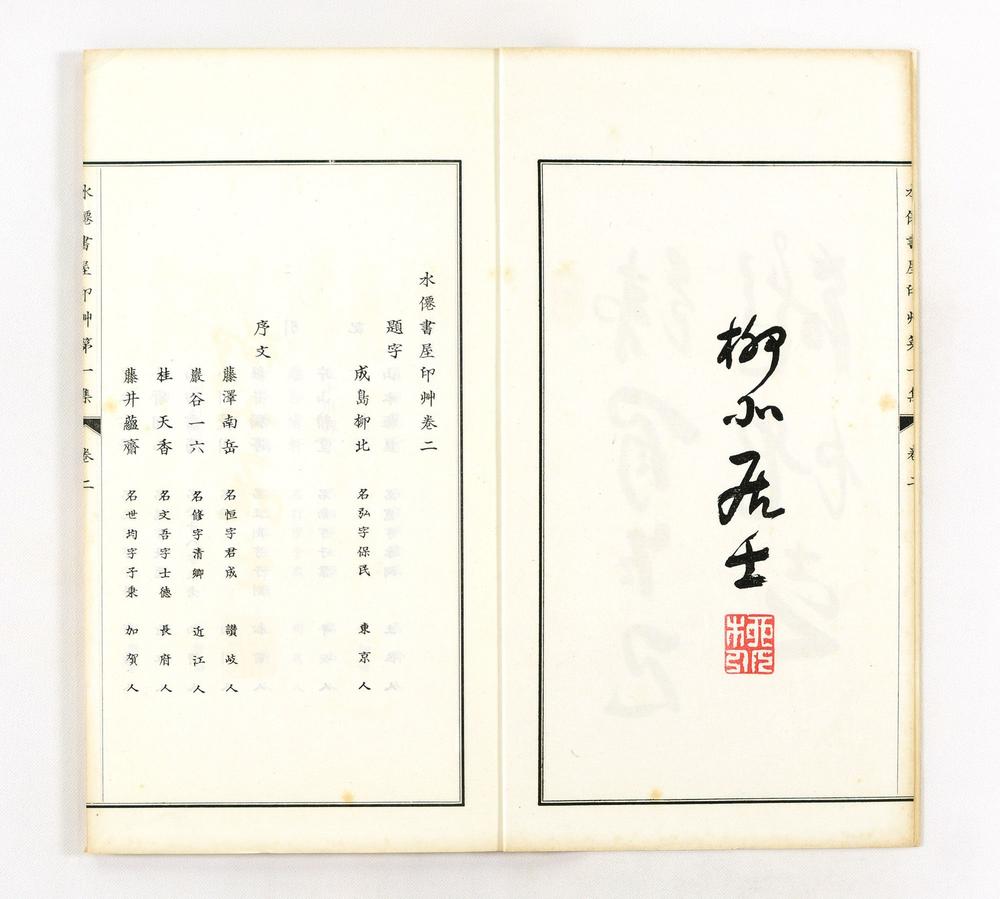 柳北居士
水僊書屋印艸第一集 卷二
水僊書屋印艸卷二
題字
成島柳北 名弘字保民 東京人
序文
藤澤南岳 名恒字君成 讃岐人
巖谷一六 名修字清卿 近江人
桂 天香 名文吾字士德 長府人
藤井蘊齋 名世均字子秉 加賀人
水僊書屋印艸第一集 卷二